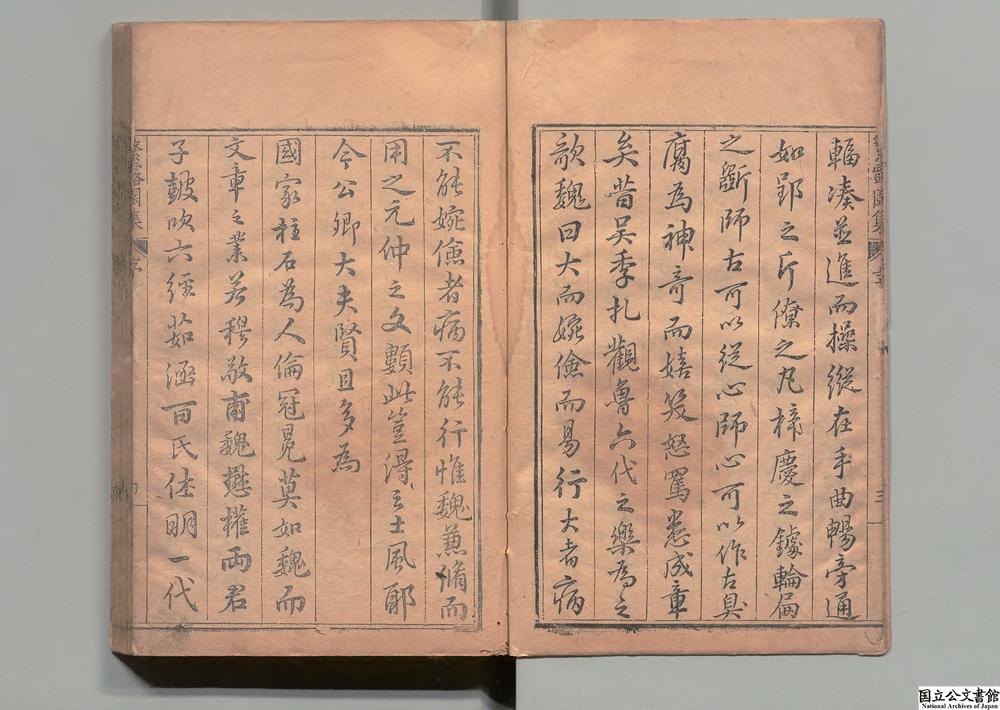 輻湊並進而操縱在手曲暢旁通
如郢之斤僚之丸梓慶之鐻輪扁
之斲師古可以從心師心可以作古臭
腐為神奇而嬉笑怒罵悉成章
矣昔吳季札觀魯六代之樂為之
歌魏曰大而婉儉而易行大者病
不能婉儉者病不能行惟魏兼脩而
用之元仲之文顆此豈得之士風耶
今公卿大夫賢且多為
國家柱石為人倫冠冕莫如魏而
文章之業若穆敬甫魏懋權兩君
子鼓吹六經茹涵百氏佐明一代
露園集
序
三
露園集
序
四
国立公文書館
National Archives of Japan